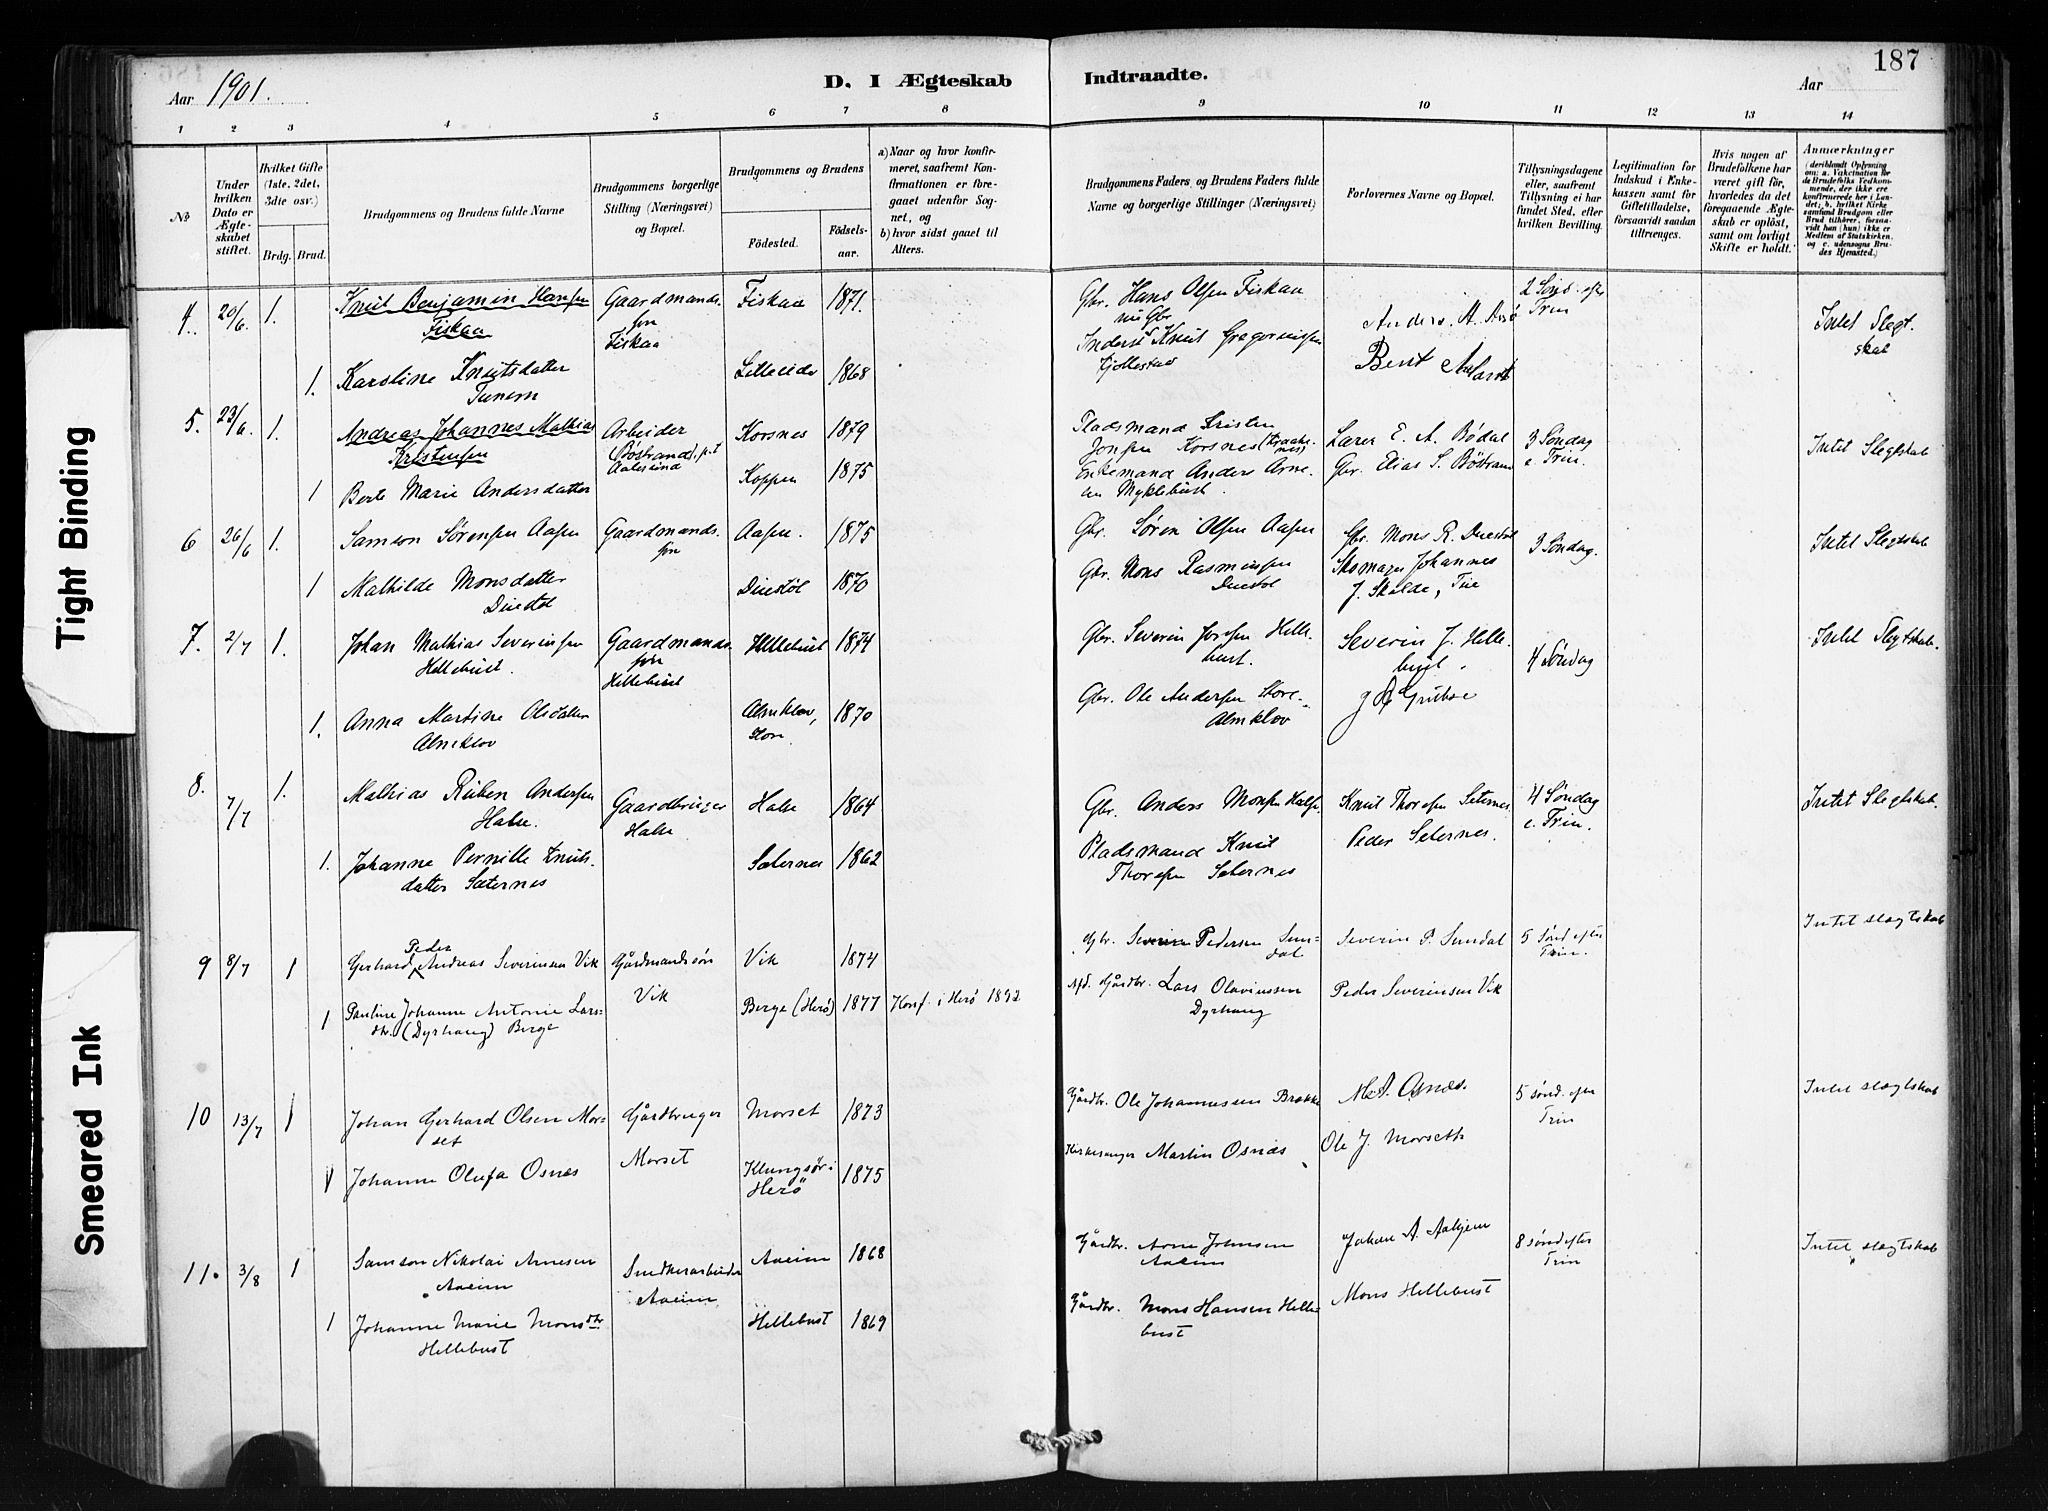 187
Aar 1901.
D. I Ægteskab Indtraadte.
Aar
1 2 3 4 5 6 7 8 9 10 11 12 13 14
No
Under hvilken Dato er Ægteskabet stiftet.
Hvilket Gifte (1ste, 2det, 3die osv.)
Brdg. Brud.
Brudgommens og Brudens fulde Navne
Brudgommens borgerlige Stilling (Næringsvei) og Bopæl.
Brudgommens og Brudens
Födested.
Födsels-aar.
a) Naar og hvor konfirmeret, saafremt Konfirmationen er foregaaet udenfor Sognet, og
b) hvor sidst gaaet til Alters.
Brudgommens Faders og Brudens Faders fulde Navne og borgerlige Stillinger (Næringsvei)
Forlovernes Navne og Bopæl.
Tillysningsdagene eller, saafremt Tillysning ei har fundet Sted, efter hvilken Bevilling.
Legitimation for Indskud i Enkekassen samt for Giftetilladelse, forsaavidt saadan tiltrænges.
Hvis nogen af Brudefolkene har været gift før, hvorledes da det foregaaende Ægteskab er oplöst, samt om lovligt Skifte er holdt.
Anmærkninger
(deriblandt Oplysning om: a. Vakcination for de Brudefolks Vedkommende, der ikke ere konfirmerede her i Landet; b. hvilket Kirkesamfund Brudgom eller Brud tilhører, forsaavidt han (hun) ikke er Medlem af Statskirken, og c. udensogns Brudes Hjemsted.)
4. 20/6. 1. Knut Benjamin Hansen
Fiskaa
Gaardmands.
søn
Fiskaa
Fiskaa 1871.
Gbr. Hans Olsen Fiskaa
Anders. A.
2 Sønd. efter
Trin
Intet Slegt.
skab
1. Karoline Knutsdatter
Tunem
1868
Knut Gregoriussen
Bent
5. 23/6. 1. Andreas Johannes Mathias
Kristensen
Arbeider
(Bøstrand), p.t
Aalesund
Korsnes 1879
Pladsmand Kristen
Jonsen Korsnes
Lærer E. A. Bödal
3 Søndag
e. Trin.
Intet Slegtskab
1 Berte Marie Andersdatter
Koppen 1875
Enkemand Anders Arne-
sen Myklebust.
Gbr. Elias S. Böstrand
6 26/6 1. Samson Sørensen Aasen
Gaardmands.
søn
Aasen. 1875
Gbr. Søren Olsen Aasen
Gbr. Mons R. Duestøl
3 Søndag.
Intet Slegtskab
1 Mathilde Monsdatter
Duestøl
Duestøl 1870
Gbr. Mons Rasmussen
Duestøl
Skomager Johannes
J. Skalde,
7. 2/7 1. Johan Mathias Severinsen
Hellebust.
Gaardmands.
søn
Hellebust
Hellebust 1874
Gbr. Severin Josefsen Helle-
bust.
Severin J. Helle-
bust.
4 Søndag
Intet Slegtskab.
1. Anna Martine Olsdatter
Almklov
Almklov,
Store 1870
Gbr. Ole Andersen Store-
Almklov
8. 7/7 1. Mathias Ruben Andersen
Halse.
Gaardbruger
Halse
Halse 1864
Gbr. Anders Monsen Halse.
Knut Thoresen Seternes
4 Søndag
e. Trin.
Intet Slegtskab.
1. Johanne Pernille Knuts-
datter Sæternes
Sæternes 1862
Pladsmand Knut
Thoresen Seternes
Peder Seternes.
9 8/7 1 Gerhard Peder Andreas Severinsen Vik
Gårdmandssøn
Vik
Vik 1874
Gbr. Severin Pedersen Sun-
dal
Severin P. Sundal
5 Sønd efter
Trin.
Intet slægtskab
1 Pauline Johanne Antonie Lars-
dtr. (Dyrhaug) Berge
Berge (Herø) 1877 Konf. i Herø 1892
Afd. Gårdbr. Lars Olaviussen
Dyrhaug
Peder Severinsen Vik
10 13/7 1 Johan Gerhard Olsen Mor-
set
Gårdbruger
Morset
Morset 1873
Gårdbr. Ole Johannessen Brekke
M. A. Osnæs.
5 sønd. efter
Trin
Intet slægtskab
1 Johanne Olufa Osnæs
Klungsør i
Herø 1875
Kirkesanger Martin Osnæs
Ole J. Morseth
11. 3/8 1 Samson Nikolai Arnesen
Aaeim
Snedkerarbeider
Aaeim
Aaeim 1868
Gårdbr. Arne Johnsen
Aaeim
Johan A. Aahjem
8 sønd efter
Trin
Intet slægtskab
1 Johanne Marie Monsdtr
Hellebust
Hellebust 1869
Gårdbr. Mons Hansen Helle-
bust
Mons Hellebust
Tight Binding
Smeared Ink